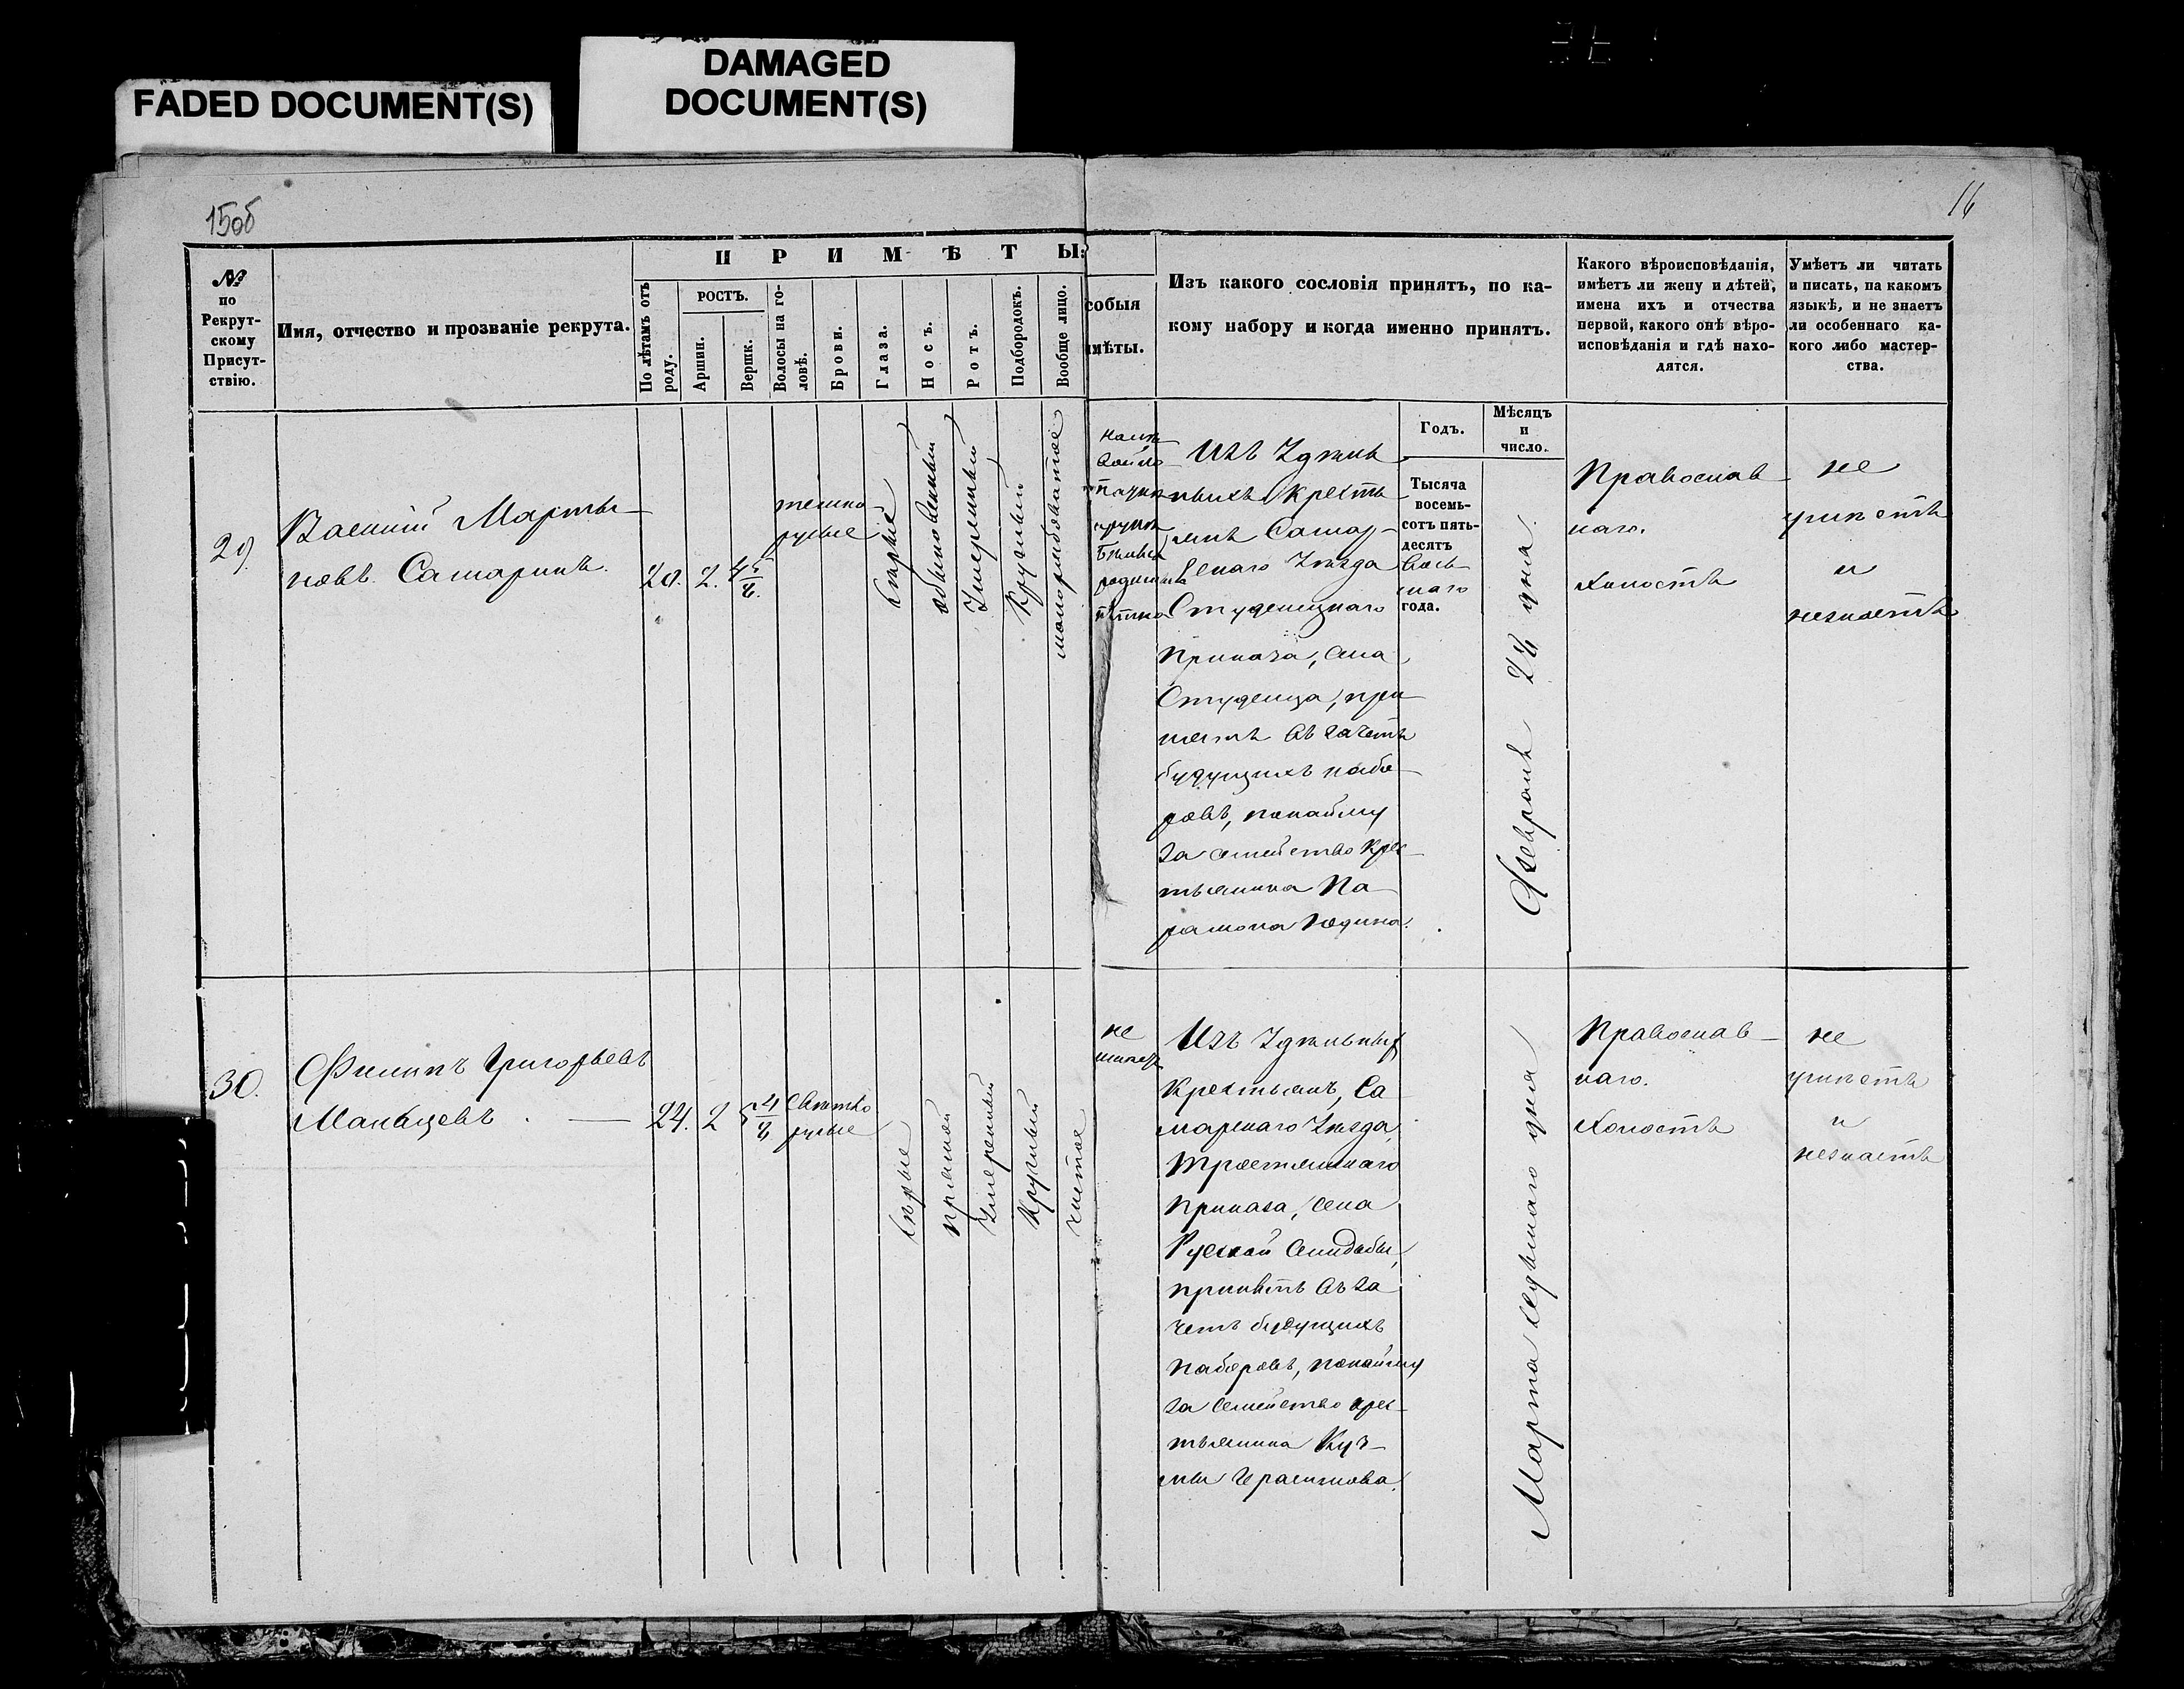 FADED DOCUMENT(S)
DAMAGED
DOCUMENT(S)
15об
16
№
по
Рекрут-
скому
Присут-
ствію.
Имя, отчество и прозваніе рекрута.
ПРИМѢТЫ:
По лѣтамъ отъ
роду.
РОСТЪ.
Аршин.
Вершк.
Волосы на го-
ловѣ.
Брови.
Глаза.
Носъ.
Ротъ.
Подбородокъ.
Вообще лицо.
собыя
мѣты.
Изъ какого сословія принятъ, по ка-
кому набору и когда именно принятъ.
Какого вѣроисповѣданія,
имѣетъ ли жену и дѣтей,
имена ихъ и отчества
первой, какого онѣ вѣро-
исповѣданія и гдѣ нахо-
дятся.
Умѣетъ ли читать
и писать, на какомъ
языкѣ, и не знаетъ
ли особеннаго ка-
кого либо мастер-
ства.
Годъ.
Мѣсяцъ
и
число.
29.
Василій Марты-
новъ Самаринъ.
20.
2.
4 5/8.
темно
русые
сѣрые
обыкновенный
умеренный
круглый
малорябоватое
на
родимое
пятно
Изъ Удѣль
ныхъ кресть
янъ Самар-
скаго Уѣзда
Студенецкаго
Приказа, села
Студенца, при
нятъ въ зачетъ
будущихъ набо-
ровъ, понайму
за семейство кре-
стьянина Па-
рамона Юдина.
Тысяча
восемь-
сотъ пять-
десятъ
вось-
маго
года.
Февраля 24 дня
Православ-
наго.
Холостъ
не
умѣетъ
и
незнаетъ
30.
Филипъ Григорьевъ
Мальцевъ. —
24.
2
5 4/8
Свѣтло
русые
сѣрые
прямой
умеренный
круглый
чистое
не
имѣетъ
Изъ Удѣльныхъ
Крестьянъ, Са
марскаго Уѣзда,
Тростянскаго
приказа, села
Русской Селидьбы,
принятъ въ за
четъ будущихъ
наборовъ, понайму
за семейство крес-
тьянина Кузь-
мы Герасимова.
Марта седьмаго дня
Православ-
наго.
Холостъ
не
умѣетъ
и
незнаетъ